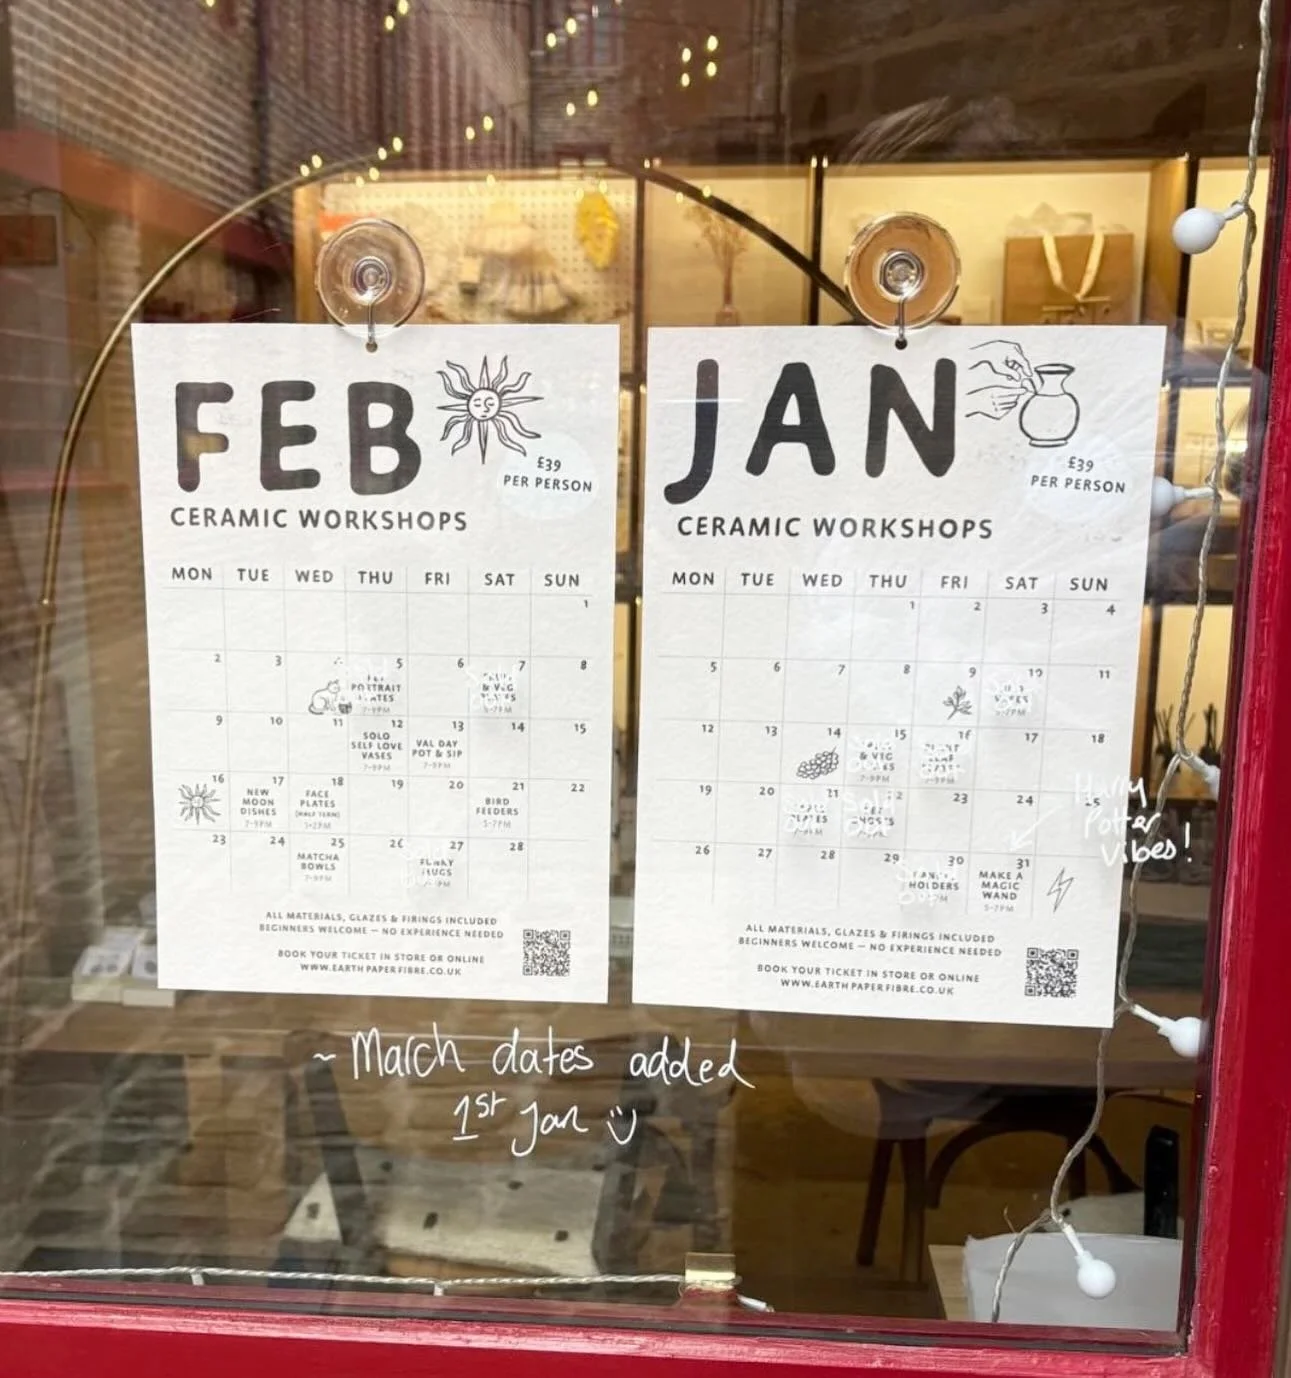 FEB
£39
PER PERSON
CERAMIC WORKSHOPS
MON TUE WED THU FRI SAT SUN
1
2 3 5 6 7 8
PORTRAIT
& VEG
7-9PM
5-7PM
9 10 11 12 13 14 15
SOLO
SELF LOVE
VASES
7-9PM
VAL DAY
POT & SIP
7-9PM
16 17 18 19 20 21 22
NEW
MOON
DISHES
7-9PM
FACE
PLATES
(HALF TERM)
BIRD
FEEDERS
5-7PM
23 24 25 26 27 28
MATCHA
BOWLS
7-9PM
FUNKY
MUGS
ALL MATERIALS, GLAZES & FIRINGS INCLUDED
BEGINNERS WELCOME — NO EXPERIENCE NEEDED
BOOK YOUR TICKET IN STORE OR ONLINE
WWW.EARTHPAPERFIBRE.CO.UK
JAN
£39
PER PERSON
CERAMIC WORKSHOPS
MON TUE WED THU FRI SAT SUN
1 2 3 4
5 6 7 8 9 10 11
5-7PM
12 13 14 15 16 17 18
& VEG
7-9PM
7-9PM
19 20 21 23 24 25
Sold Sold
out out
PLATES
7-9PM
Harry
Potter
Vibes!
26 27 28 29 30 31
Sold
out
HOLDERS
MAKE A
MAGIC
WAND
5-7PM
ALL MATERIALS, GLAZES & FIRINGS INCLUDED
BEGINNERS WELCOME — NO EXPERIENCE NEEDED
BOOK YOUR TICKET IN STORE OR ONLINE
WWW.EARTHPAPERFIBRE.CO.UK
~ March dates added
1st Jan